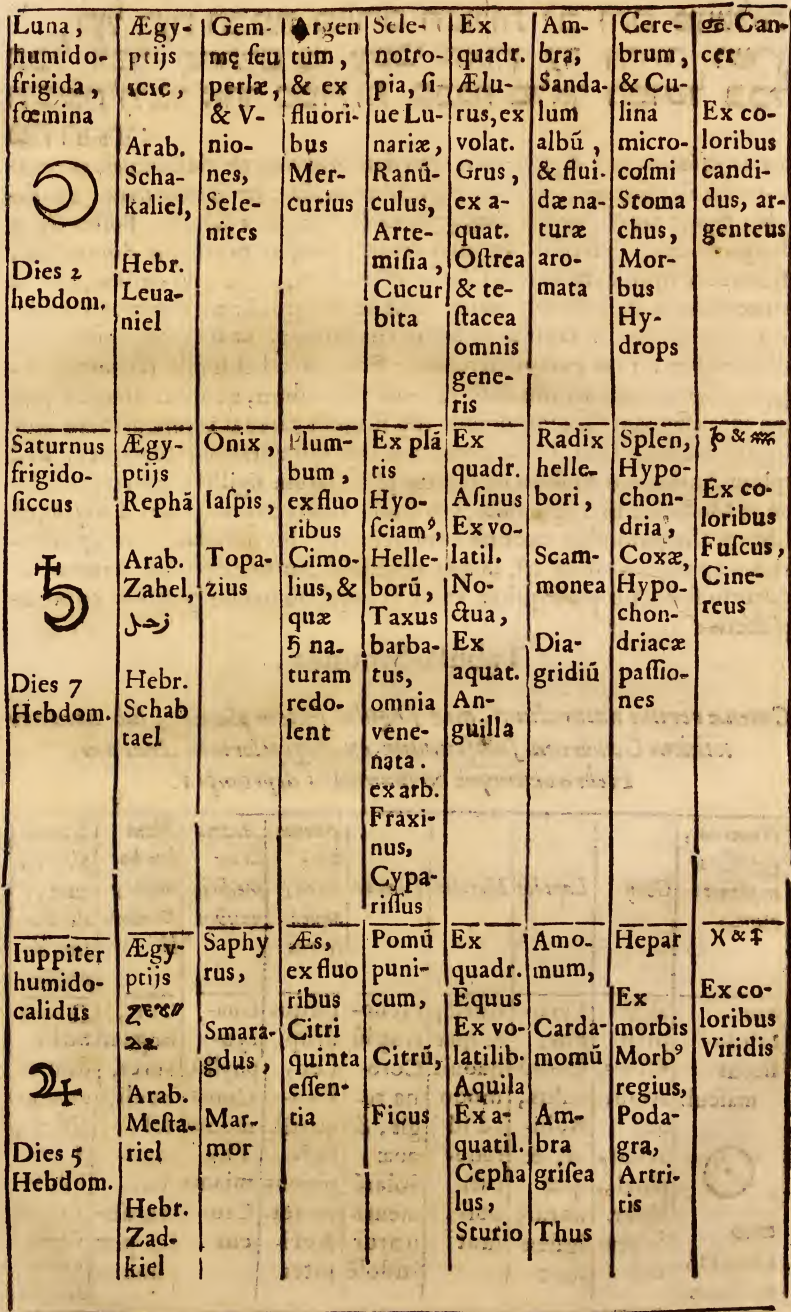 Luna,
humido-
frigida,
fœmina
☽
Dies 2
hebdom.
Ægy-
ptijs
Arab.
Scha-
kaliel,
Hebr.
Leua-
niel
Gem-
mę ſeu
perlæ,
& V-
nio-
nes,
Sele-
nites
Argen
tum,
& ex
fluori-
bus
Mer-
curius
Sele-
notro-
pia, ſi
ue Lu-
nariæ,
Ranū-
culus,
Arte-
miſia,
Cucur
bita
Ex
quadr.
Ælu-
rus, ex
volat.
Grus,
ex a-
quat.
Oſtrea
& te-
ſtacea
omnis
gene-
ris
Am-
bra,
Sanda-
lum
albū,
& flui-
dæ na-
turæ
aro-
mata
Cere-
brum,
& Cu-
lina
micro-
coſmi
Stoma
chus,
Mor-
bus
Hy-
drops
♋ Can-
cer
Ex co-
loribus
candi-
dus, ar-
genteus
Saturnus
frigido-
ſiccus
♄
Dies 7
Hebdom.
Ægy-
ptijs
Rephā
Arab.
Zahel,
زحل
Hebr.
Schab
tael
Onix,
Iaſpis,
Topa-
zius
Plum-
bum,
ex fluo
ribus
Cimo-
lius, &
quæ
♄ na-
turam
redo-
lent
Ex plā
tis
Hyo-
ſciamꝰ,
Helle-
borū,
Taxus
barba-
tus,
omnia
vene-
nata.
ex arb.
Fraxi-
nus,
Cypa-
riſſus
Ex
quadr.
Aſinus
Ex vo-
latil.
No-
ctua,
Ex
aquat.
An-
guilla
Radix
helle-
bori,
Scam-
monea
Dia-
gridiū
Splen,
Hypo-
chon-
dria,
Coxæ,
Hypo-
chon-
driacæ
paſſio-
nes
♑ & ♒
Ex co-
loribus
Fuſcus,
Cine-
reus
Iuppiter
humido-
calidus
♃
Dies 5
Hebdom.
Ægy-
ptijs
Arab.
Meſta-
riel
Hebr.
Zad-
kiel
Saphy
rus,
Smara-
gdus,
Mar-
mor
Æs,
ex fluo
ribus
Citri
quinta
eſſen-
tia
Pomū
puni-
cum,
Citrū,
Ficus
Ex
quadr.
Equus
Ex vo-
latilib.
Aquila
Ex a-
quatil.
Cepha
lus,
Sturio
Amo-
mum,
Carda-
momū
Am-
bra
griſea
Thus
Hepar
Ex
morbis
Morbꝰ
regius,
Poda-
gra,
Artri-
tis
♓ & ♐
Ex co-
loribus
Viridis